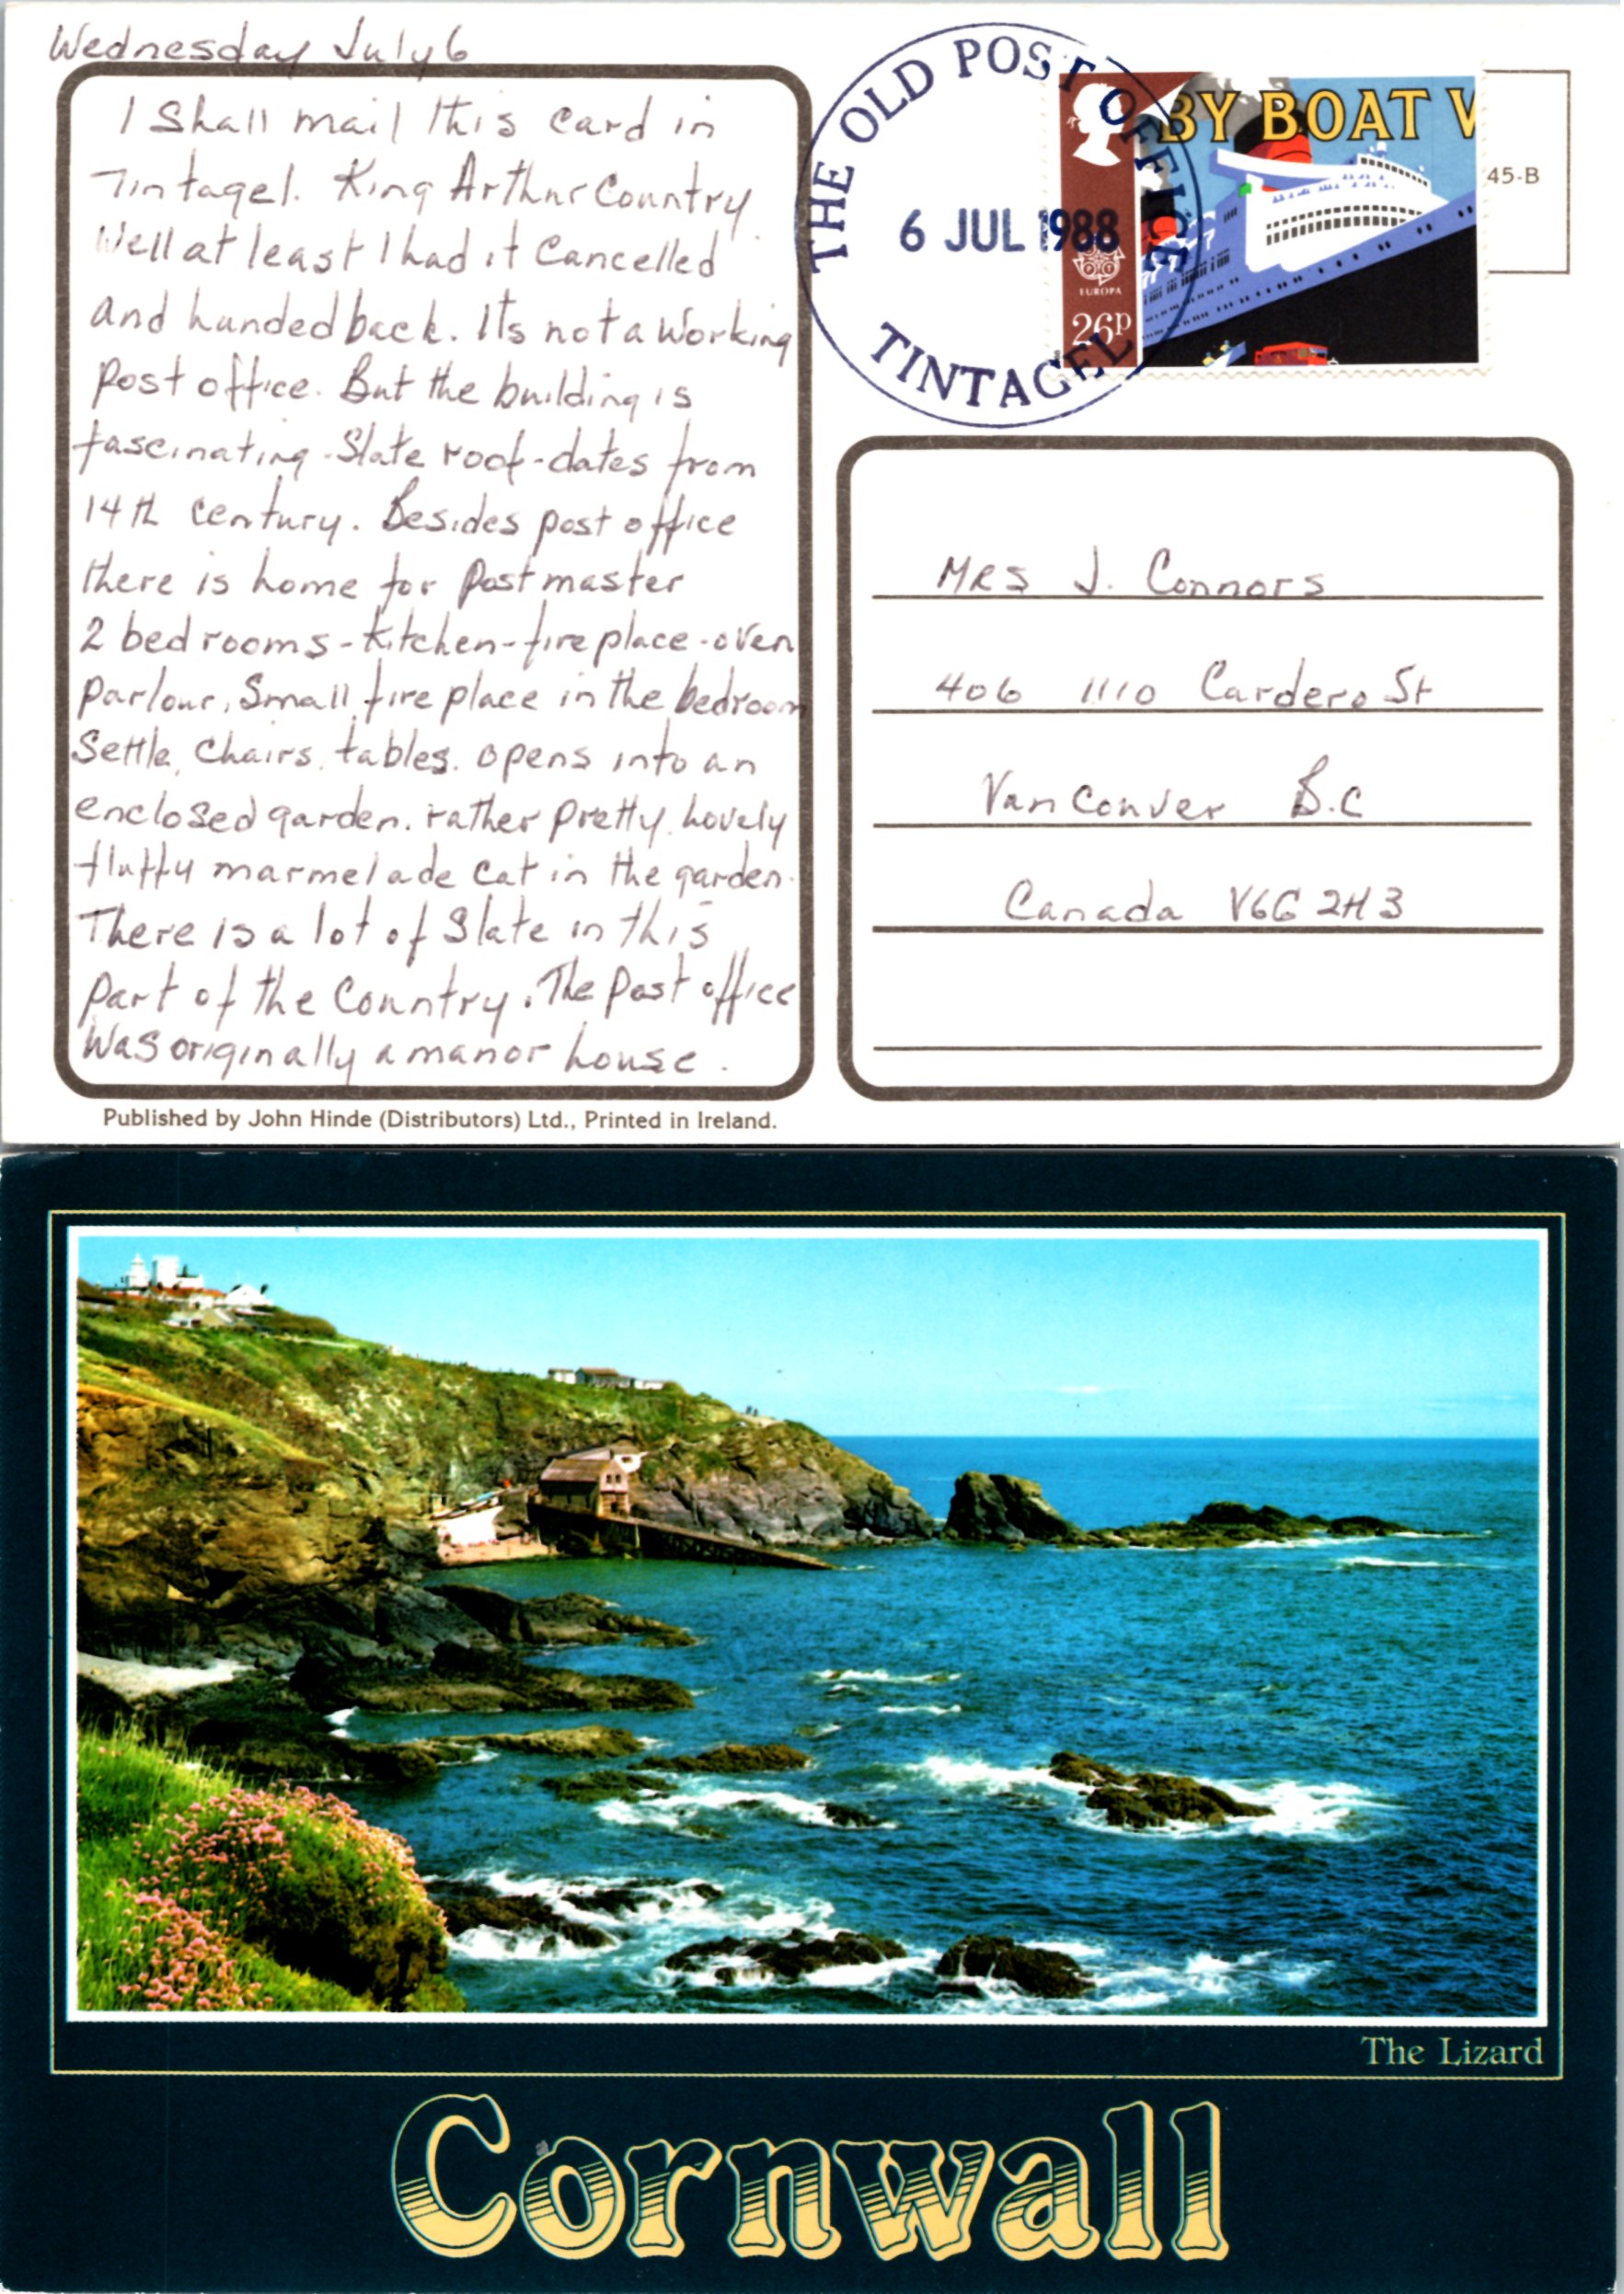 Wednesday July 6
I Shall mail this card in
Tintagel. King Arthur Country
Well at least I had it Cancelled
and handed back. Its not a working
post office. But the building is
fascinating - Slate roof - dates from
14th Century. Besides post office
there is home for Postmaster
2 bedrooms - Kitchen - fireplace - oven
Parlour, Small fireplace in the bedroom
Settle, Chairs, tables. opens into an
enclosed garden. rather pretty. Lovely
fluffy marmelade cat in the garden.
There is a lot of Slate in this
part of the Country. The post office
was originally a manor house.
Published by John Hinde (Distributors) Ltd., Printed in Ireland.
THE OLD POST OFFICE
6 JUL 1988
TINTAGEL
BY BOAT
EUROPA
26p
45-B
MRS J. Connors
406 1110 Cardero St
Vanconver B.C
Canada V6G 2H3
The Lizard
Cornwall